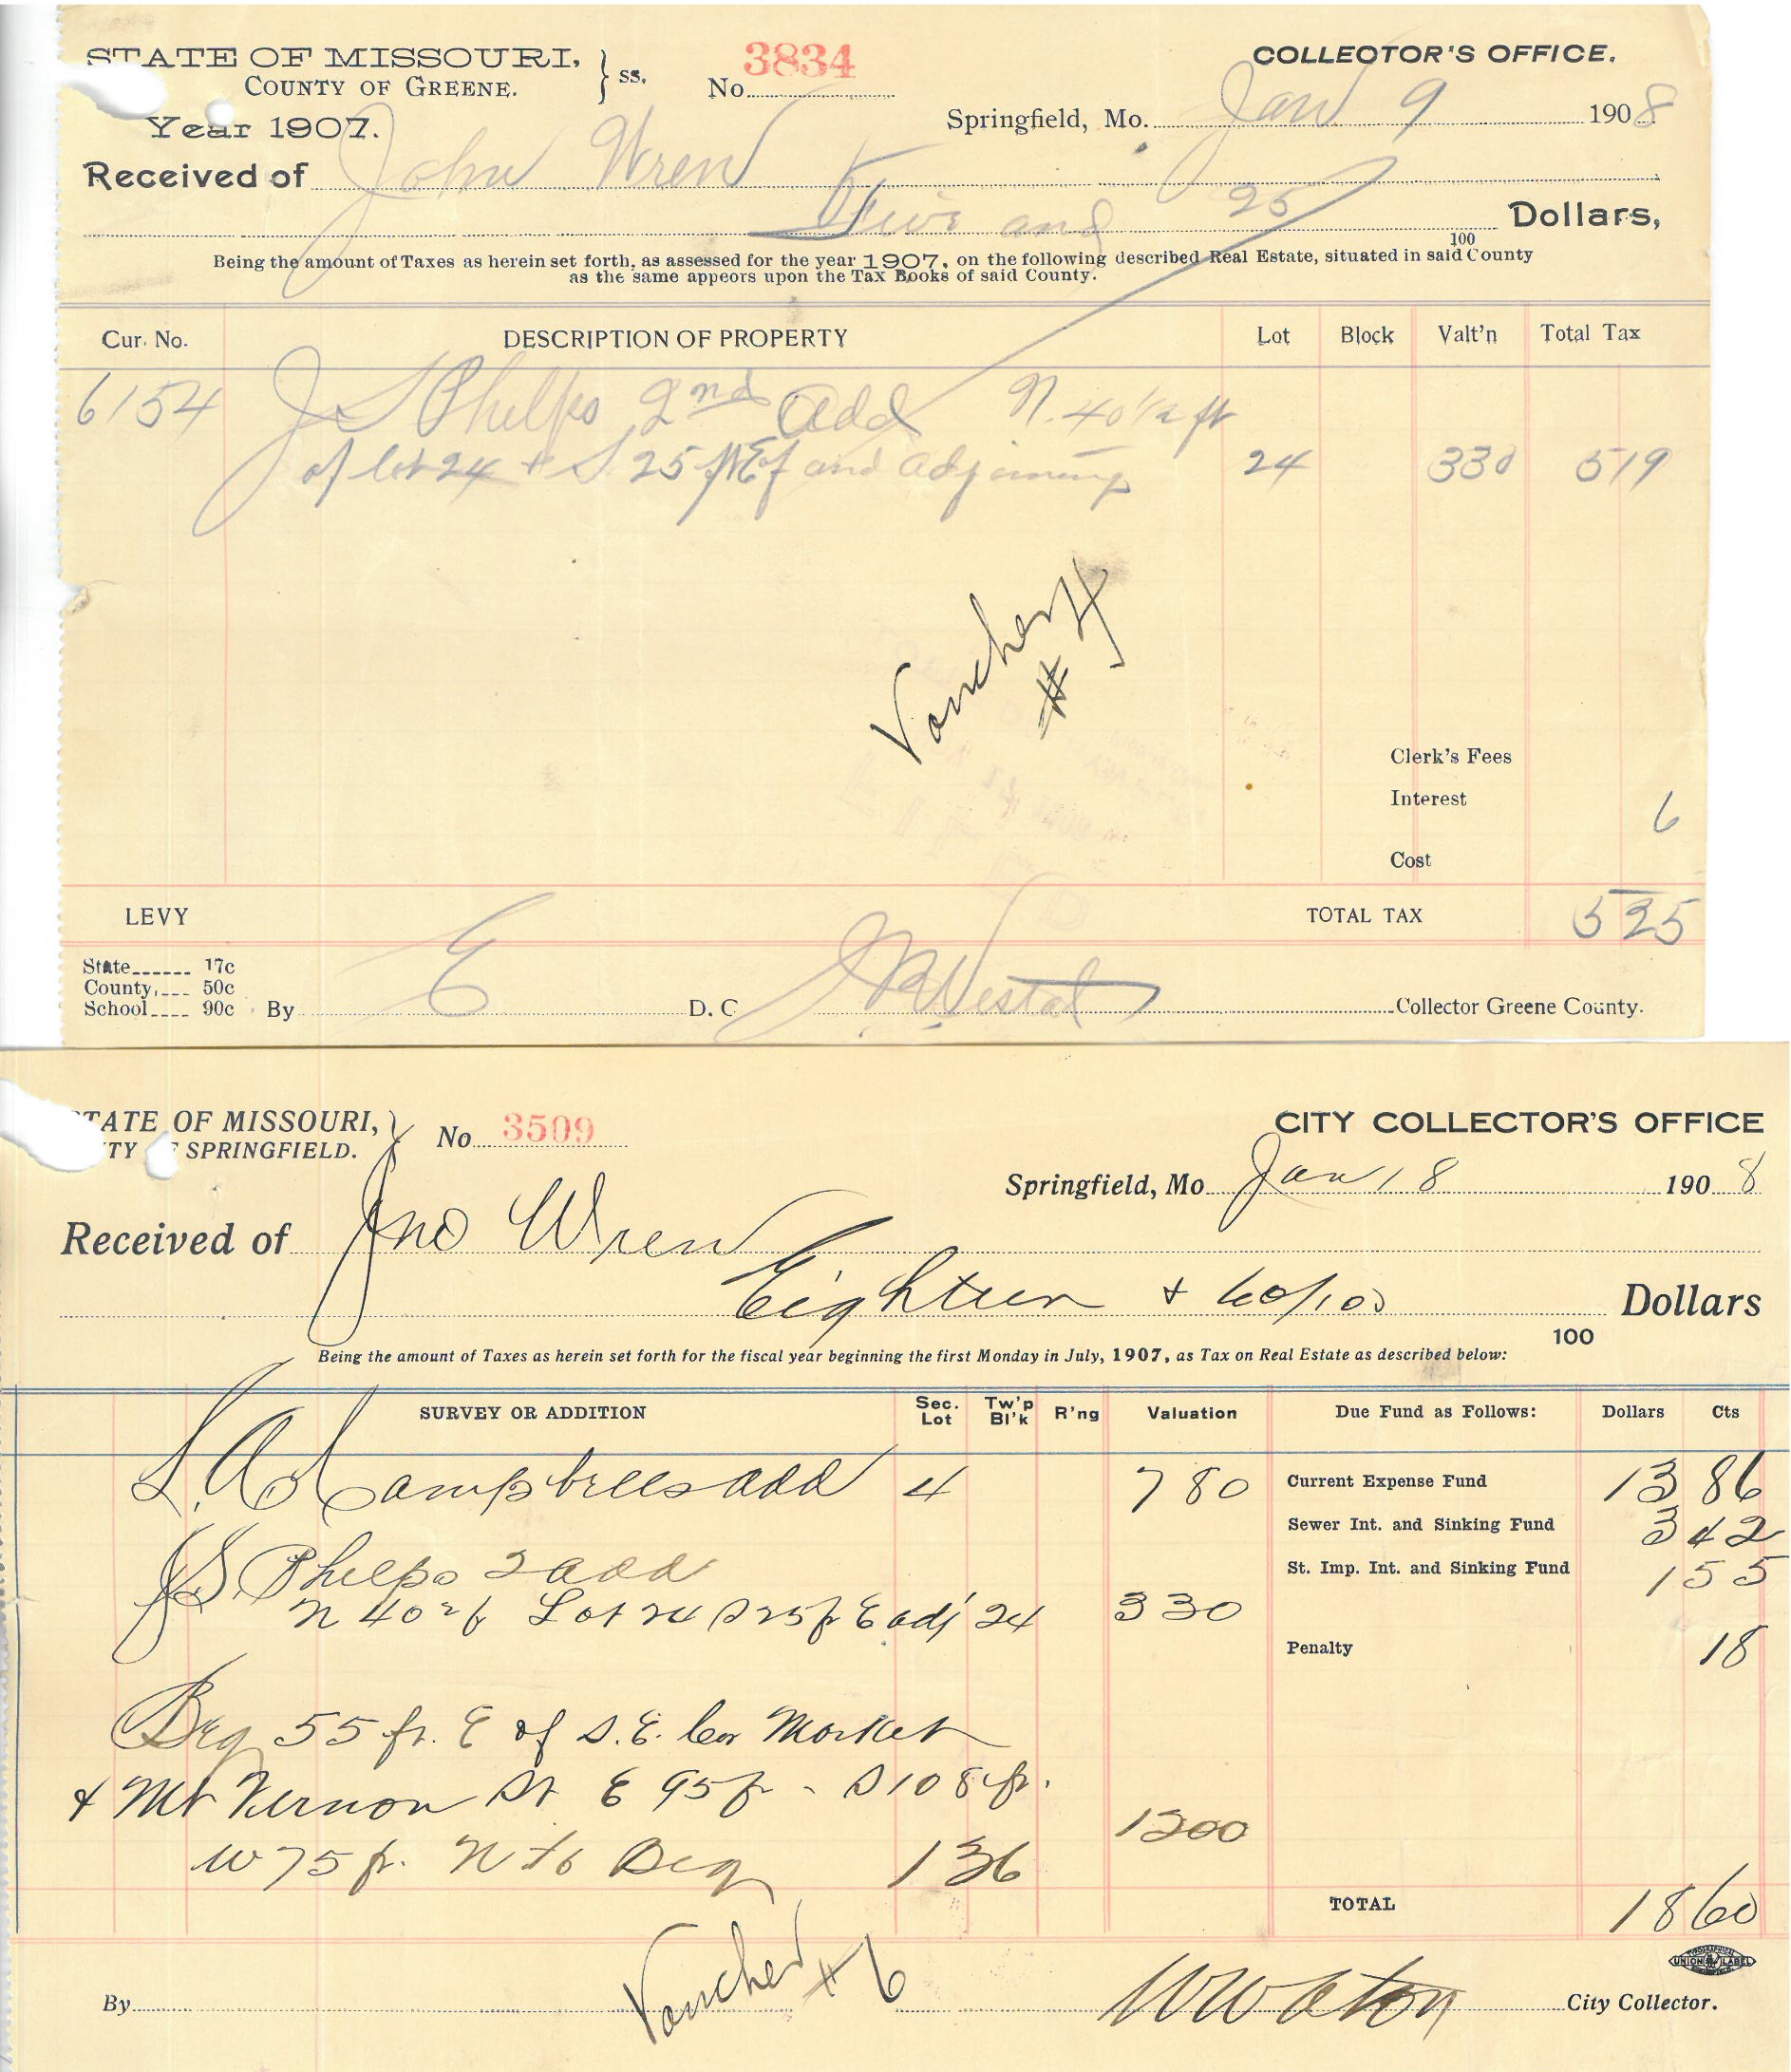 STATE OF MISSOURI, } ss. No. 3834 COLLECTOR'S OFFICE.
COUNTY OF GREENE.
Year 1907. Springfield, Mo. Jan 9 1908
Received of John Wren
Five and 25/100 Dollars,
Being the amount of Taxes as herein set forth, as assessed for the year 1907, on the following described Real Estate, situated in said County
as the same appeors upon the Tax Books of said County.
Cur. No. DESCRIPTION OF PROPERTY Lot Block Valt'n Total Tax
6154 J S Phelps 2nd Add N. 40 1/2 ft
of lot 24 + S. 25 ft E of and adjoining 24 330 5 19
Voucher
# 4
Clerk's Fees
Interest 6
Cost
LEVY TOTAL TAX 5 25
State 17c
County, 50c
School 90c By E D. C. Collector Greene County.
TATE OF MISSOURI, } No 3509 CITY COLLECTOR'S OFFICE
TY OF SPRINGFIELD.
Springfield, Mo Jan 18 1908
Received of Jno Wren
Eighteen + 60/100 Dollars
100
Being the amount of Taxes as herein set forth for the fiscal year beginning the first Monday in July, 1907, as Tax on Real Estate as described below:
SURVEY OR ADDITION Sec. Lot Tw'p Bl'k R'ng Valuation Due Fund as Follows: Dollars Cts
L. A. Campbells add 4 780 Current Expense Fund 13 86
Sewer Int. and Sinking Fund 3 42
J S. Phelps 2 add St. Imp. Int. and Sinking Fund 1 55
N 40 2 f Lot 24 S 25 f E adj 24 330
Penalty 18
Beg 55 ft. E of S. E. Cor Market
+ Mt Vernon St E 95 f - S 108 ft.
1200
W 75 ft. N to Beg 136
TOTAL 18 60
Voucher # 6
UNION LABEL
By City Collector.